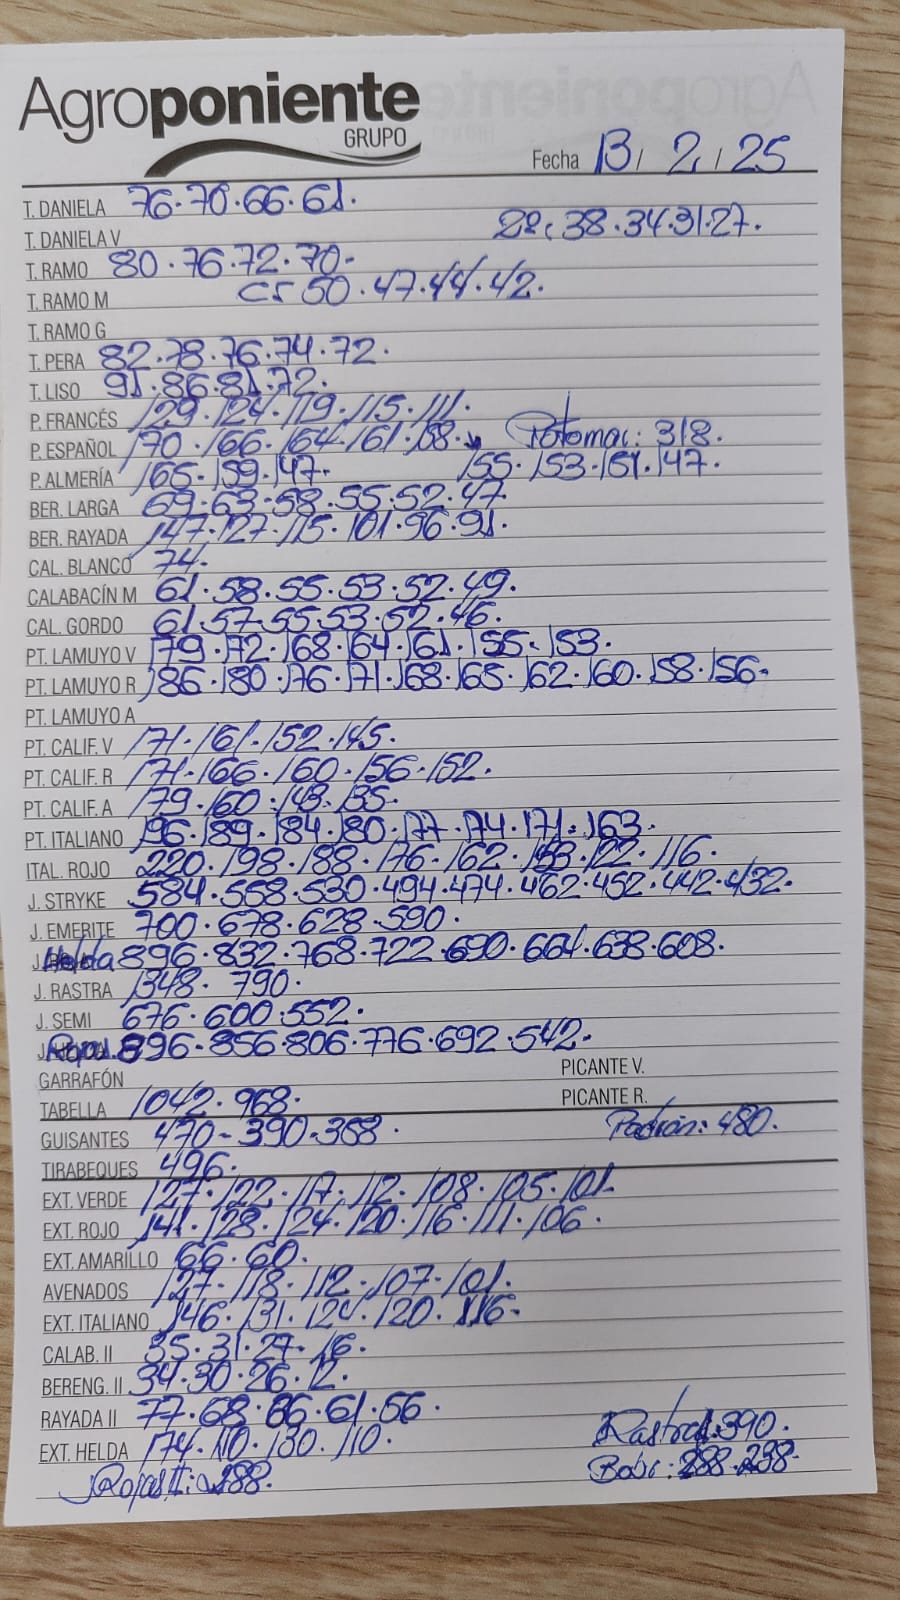 Agroponiente
GRUPO
Fecha 13 / 2 / 25
T. DANELA 76.70.66.61.
T. DANIELA V 2ª: 38.34.31.27.
T. RAMO 80.76.72.70.
T. RAMO M CS 50.47.44.42.
T. RAMO G
T. PERA 82.78.76.74.72.
T. LISO 91.86.81.72.
P. FRANCÉS 129.124.119.115.111.
P. ESPAÑOL 170.166.164.161.158. Potomac: 318.
P. ALMERÍA 165.159.147. 155.153.151.147.
BER. LARGA 69.63.58.55.52.47.
BER. RAYADA 147.127.115.101.96.91.
CAL. BLANCO 74.
CALABACÍN M 61.58.55.53.52.49.
CAL. GORDO 61.57.55.53.52.46.
PT. LAMUYO V 179.172.168.164.161.155.153.
PT. LAMUYO R 186.180.176.171.168.165.162.160.158.156.
PT. LAMUYO A
PT. CALIF. V 171.161.152.145.
PT. CALIF. R 171.166.160.156.152.
PT. CALIF. A 179.160.143.135.
PT. ITALIANO 196.189.184.180.177.174.171.163.
ITAL. ROJO 220.198.188.176.162.153.122.116.
J. STRYKE 584.558.530.494.474.462.452.442.432.
J. EMERITE 700.678.628.590.
Helda 896.832.768.722.690.664.638.608.
J. RASTRA 1348. 790.
J. SEMI 676.600.552.
Rojas. 896.856.806.776.692.542.
GARRAFÓN PICANTE V.
TABELLA 1042.968. PICANTE R.
GUISANTES 470-390.368. Padrón: 480.
TIRABEQUES 496.
EXT. VERDE 127.122.117.112.108.105.101.
EXT. ROJO 141.128.124.120.116.111.106.
EXT. AMARILLO 66.60.
AVENADOS 127.118.112.107.101.
EXT. ITALIANO 146.131.124.120.116.
CALAB. II 35.31.27.16.
BERENG. II 34.30.26.12.
RAYADA II 77.68.66.61.56.
EXT. HELDA 174.110.130.110. 390.
Rojas II: 288. 288.238.